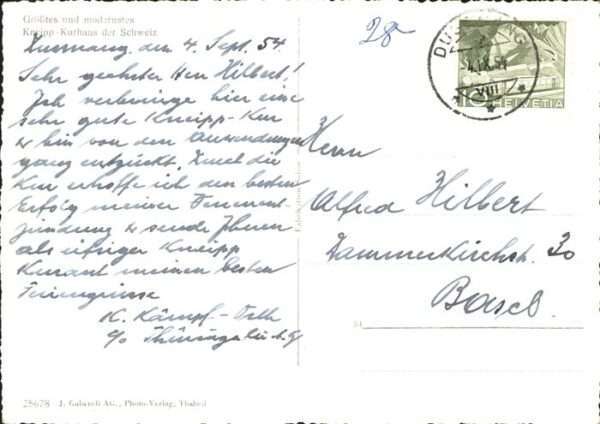 Größtes und modernstes
Kneipp-Kurhaus der Schweiz
Dussnang, den 4. Sept. 54.
Sehr geehrter Herr Hilbert!
Ich verbringe hier eine
sehr gute Kneipp-Kur
u bin von den Anwendungen
ganz entzückt. Durch die
Kur erhoffe ich den besten
Erfolg meiner
zündung u sende Ihnen
als eifriger Kneipp
Kurant meinen besten
Feriengrüsse
K. Kämpf-
c/o
28
DUSSNANG
4.IX.54
VIII
10 HELVETIA
Herrn
Alfred Hilbert
Dammerkirchstr. 30
Basel
25678 J. Gaberell AG., Photo-Verlag, Thalwil